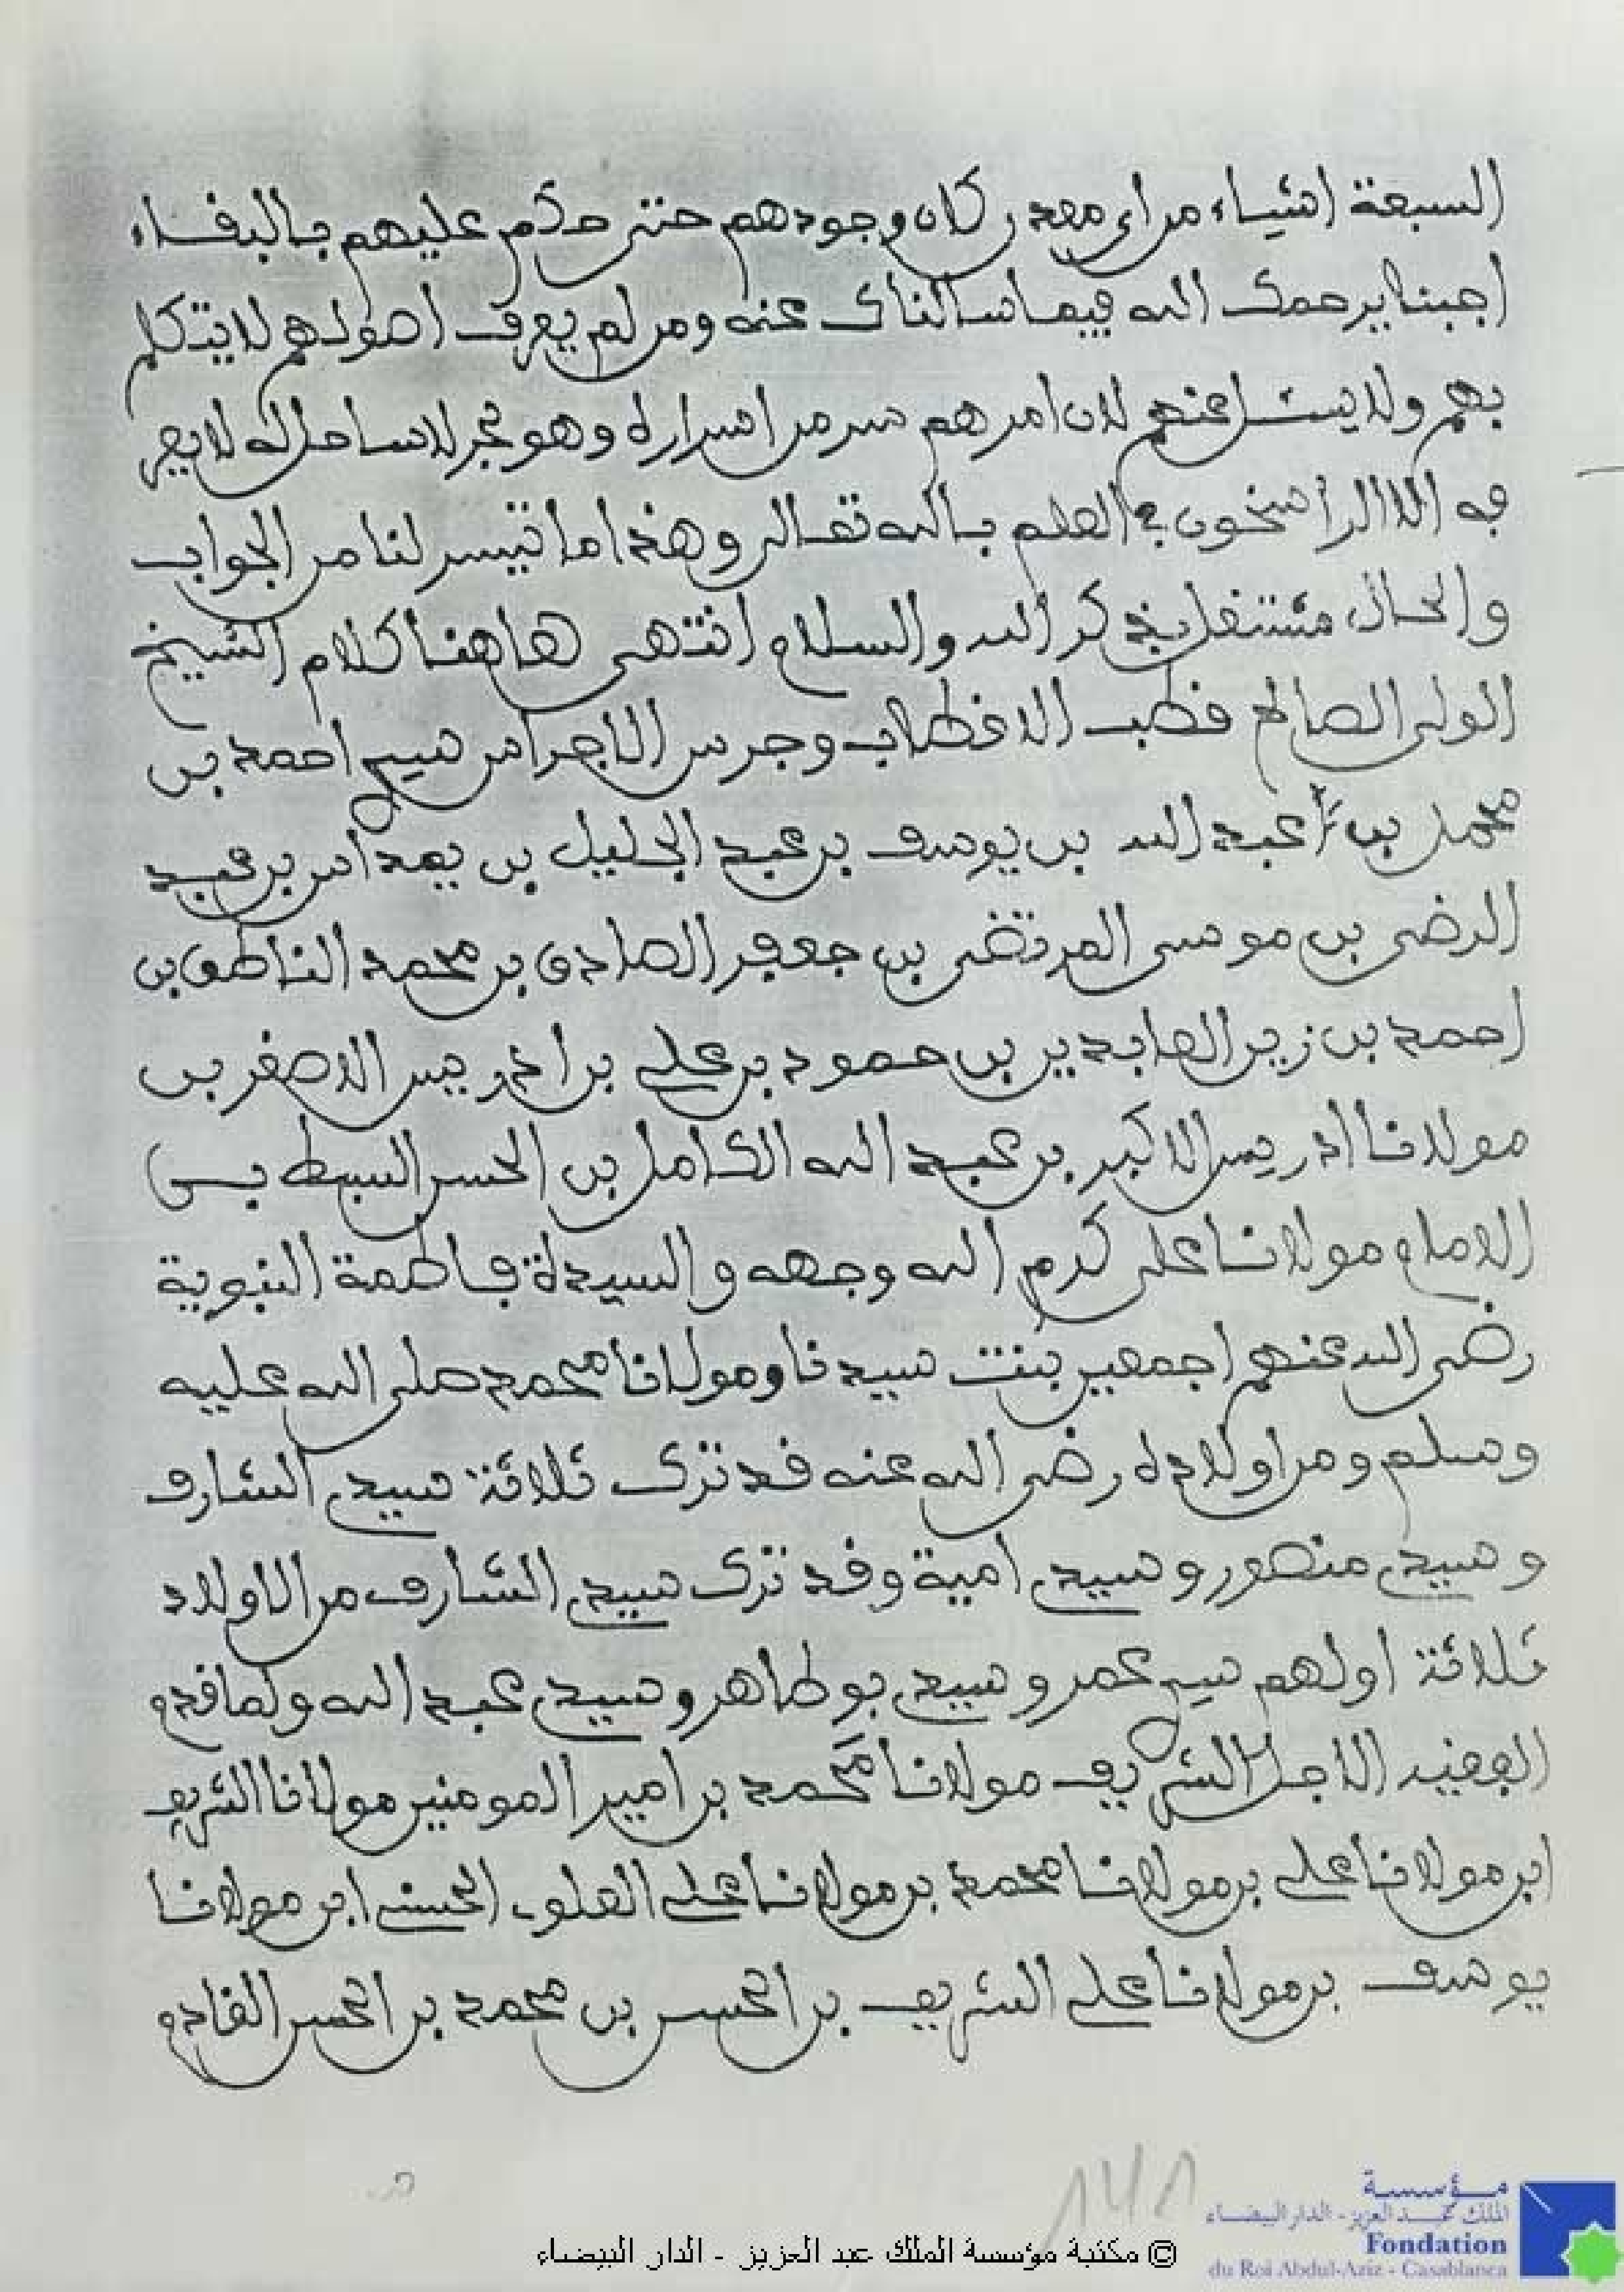 السبعة اشياء من اي معدن كان وجودهم حتى حكم عليهم بالبقاء
اجبنا يرحمك الله فيما سالناك عنه ومن لم يعرف اصولهم لا يتكلم
بهم ولا يسئل عنهم لان امرهم سر من اسراره وهو بحر لا ساحل له لا يعر
فه الا الراسخون في العلم بالله تعالى وهذا ما تيسر لنا من الجواب
والحال مشتغل بذكر الله والسلام انتهى هاهنا كلام الشيخ
الولي الصالح قطب الاقطاب وجرس الاجراس سيدي احمد بن
محمد بن عبد الله بن يوسف بن عبد الجليل بن يمداس بن عبد
الرضى بن موسى المرتضى بن جعفر الصادق بن محمد الناطق بن
احمد بن زين العابدين بن حمود بن علي بن ادريس الاصغر بن
مولانا ادريس الاكبر بن عبد الله الكامل بن الحسن السبط بن
الامام مولانا علي كرم الله وجهه والسيدة فاطمة النبوية
رضي الله عنهم اجمعين بنت سيدنا ومولانا محمد صلى الله عليه
وسلم ومن اولاده رضي الله عنه قد ترك ثلاثة سيدي الشارف
وسيدي منصور وسيدي امية وقد ترك سيدي الشارف من الاولاد
ثلاثة اولهم سيدي عمر وسيدي بوطاهر وسيدي عبد الله ولما قدم
الفقيد الاجل الشريف مولانا محمد بن امير المومنين مولانا الشريف
ابن مولانا علي بن مولانا محمد بن مولانا علي العلوي الحسني ابن مولانا
يوسف بن مولانا علي الشريف بن الحسن بن محمد بن الحسن القادم
١٤١
مؤسسة
الملك عبد العزيز - الدار البيضاء
Fondation
du Roi Abdul-Aziz - Casablanca
© مكتبة مؤسسة الملك عبد العزيز - الدار البيضاء